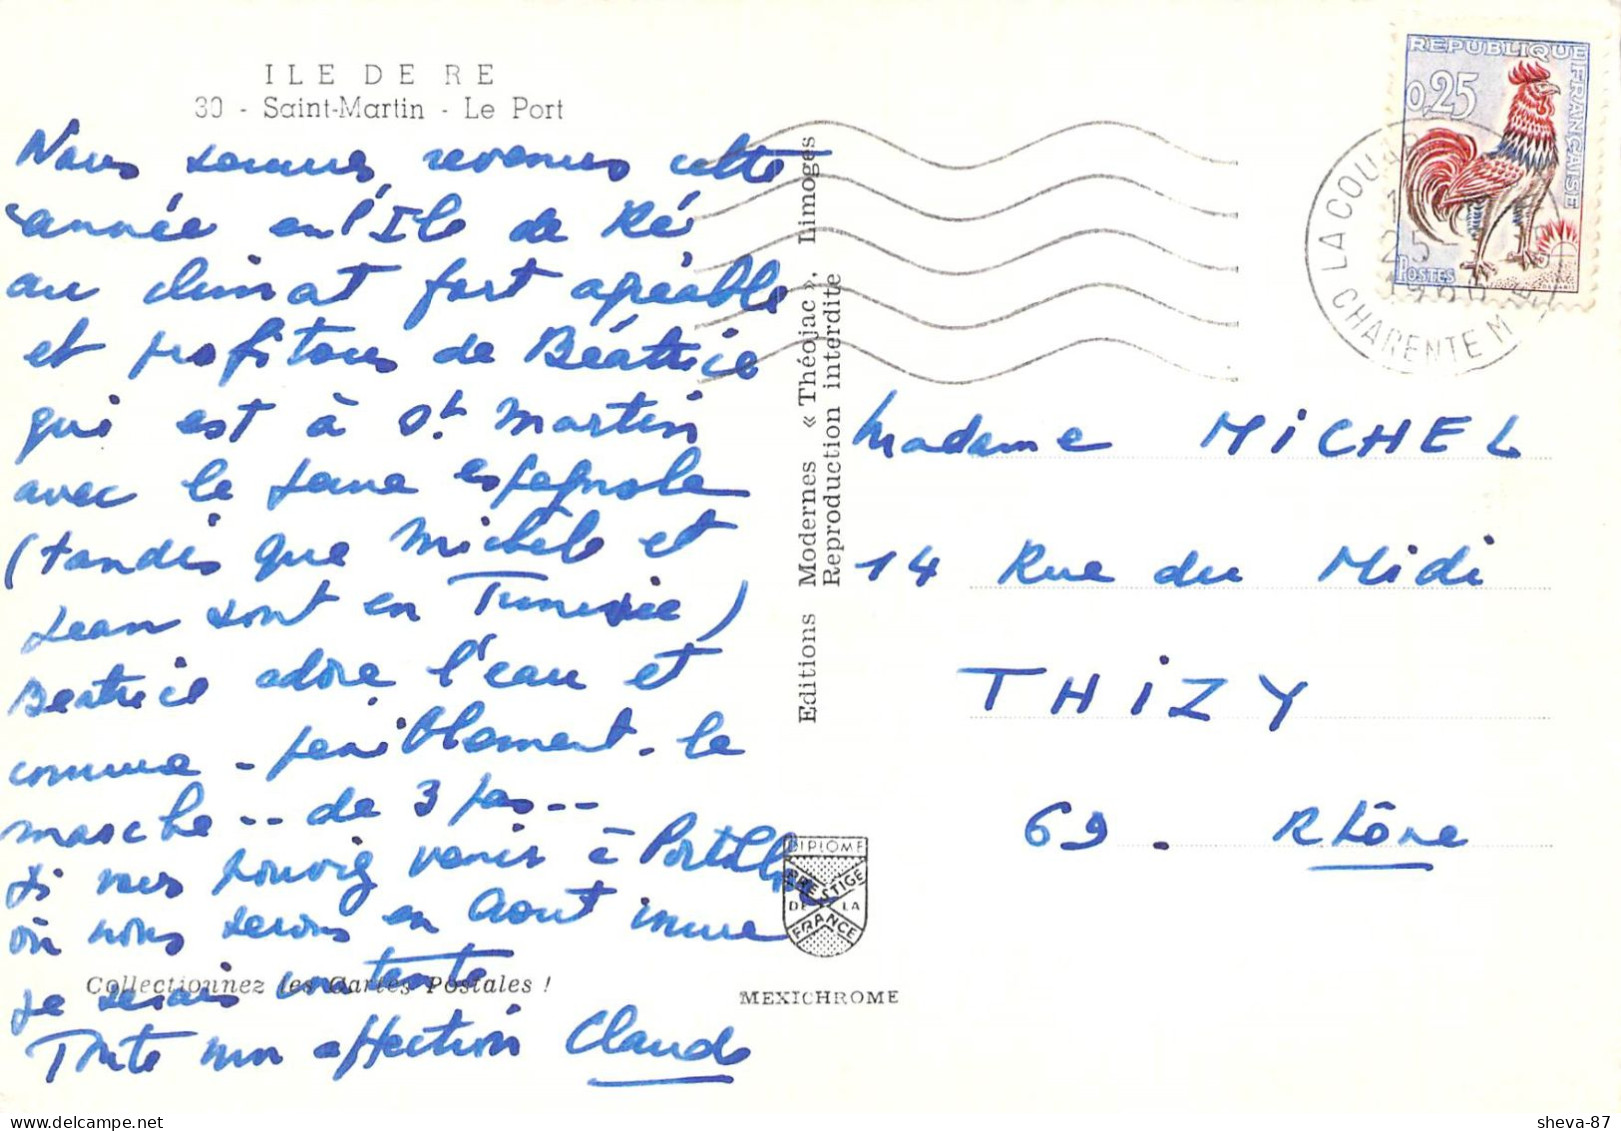 ILE DE RE
30 - Saint-Martin - Le Port
Nous sommes revenus cette
année en l'Ile de Ré
au climat fort agréable
et profitons de Béatrice
qui est à St. Martin
avec le jeune espagnole
(tandis que Michèle et
Jean sont en Tunisie)
Béatrice adore l'eau et
commence - péniblement - la
marche -- de 3 pas --
Si vous pouviez venir à
où nous serons en Aout
je serais contente
Toute mon affection Claude
Collectionnez les Cartes Postales !
Editions Modernes « Théojac », Limoges
Reproduction interdite
DIPLOME
PRESTIGE
DE LA
FRANCE
MEXICHROME
REPUBLIQUE FRANÇAISE
0,25
POSTES
LA COUA
CHARENTE M
Madame MICHEL
14 Rue du Midi
THIZY
69 - Rhône
sheva-87